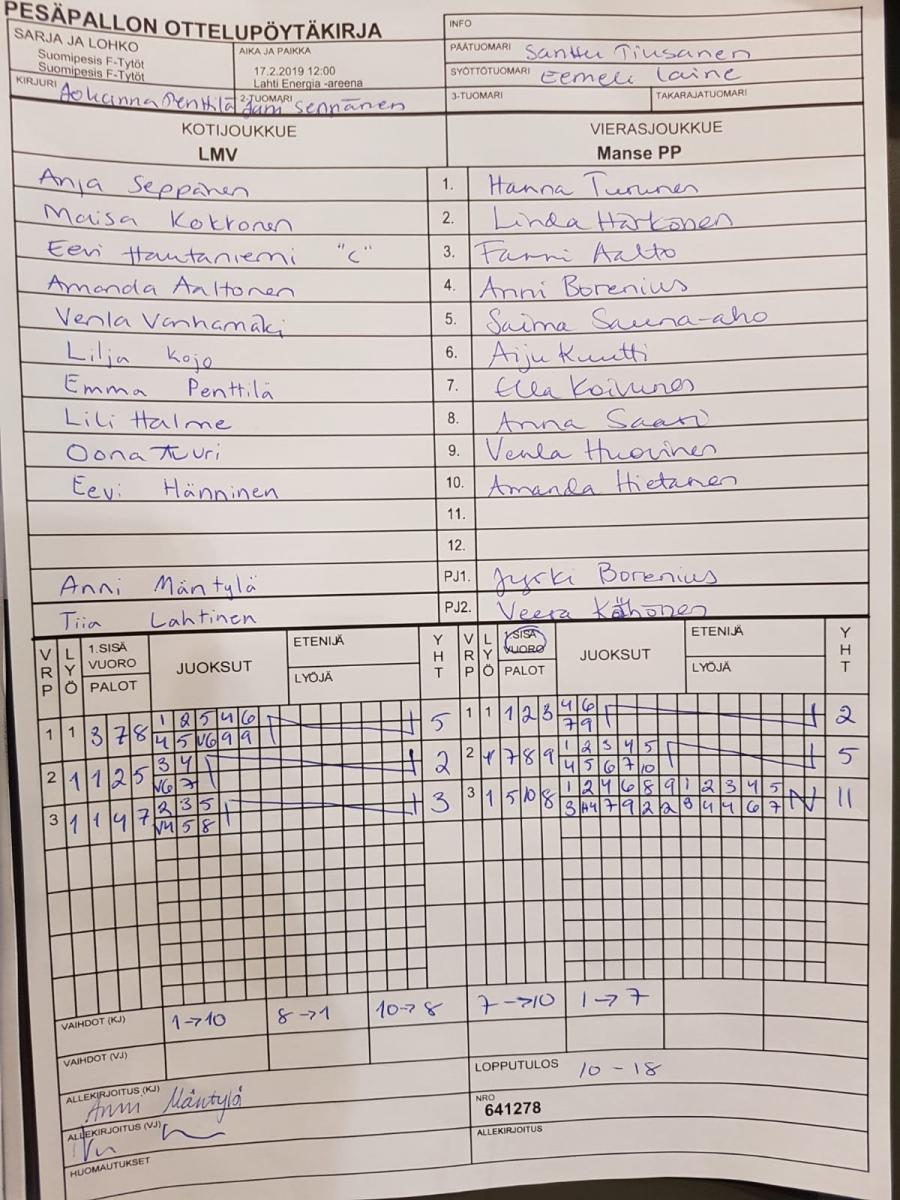 PESÄPALLON OTTELUPÖYTÄKIRJA
INFO
SARJA JA LOHKO
Suomipesis F-Tytöt
Suomipesis F-Tytöt
AIKA JA PAIKKA
17.2.2019 12:00
Lahti Energia -areena
PÄÄTUOMARI Santtu Tiusanen
SYÖTTÖTUOMARI Eemeli Laine
KIRJURI Johanna Penttilä
2-TUOMARI Jami Seppänen
3-TUOMARI
TAKARAJATUOMARI
KOTIJOUKKUE
LMV
VIERASJOUKKUE
Manse PP
Anja Seppänen 1. Hanna Turunen
Maisa Kokkonen 2. Linda Härkönen
Eevi Hautaniemi "C" 3. Fanni Aalto
Amanda Aaltonen 4. Anni Borenius
Venla Vanhamäki 5. Saima Sauna-aho
Lilja Kojo 6. Aiju Kuutti
Emma Penttilä 7. Ella Koivunen
Lili Halme 8. Anna Saari
Oona Turi 9. Venla Huovinen
Eevi Hänninen 10. Amanda Hietanen
11.
12.
Anni Mäntylä PJ1. Jyrki Borenius
Tiia Lahtinen PJ2. Veera Kähönen
VRP LYÖ 1.SISÄ VUORO PALOT JUOKSUT ETENIJÄ LYÖJÄ YHT VRP LYÖ 1.SISÄ VUORO PALOT JUOKSUT ETENIJÄ LYÖJÄ YHT
1 2 5 4 6 4 6
1 1 3 7 8 5 1 1 1 2 3 2
4 5 V6 9 9 7 9
3 4 1 2 3 4 5
2 1 1 2 5 2 2 7 8 9 5
V6 7 4 5 6 7 10
2 3 5 1 2 4 6 8 9 1 2 3 4 5
3 1 1 4 7 3 3 1 5 10 8 11
V4 5 8 3 7 9 2 2 3 4 4 6 7
VAIHDOT (KJ) 1→10 8→1 10→8 7→10 1→7
VAIHDOT (VJ)
ALLEKIRJOITUS (KJ) Anni Mäntylä
LOPPUTULOS 10 - 18
NRO
641278
ALLEKIRJOITUS (VJ)
ALLEKIRJOITUS
HUOMAUTUKSET